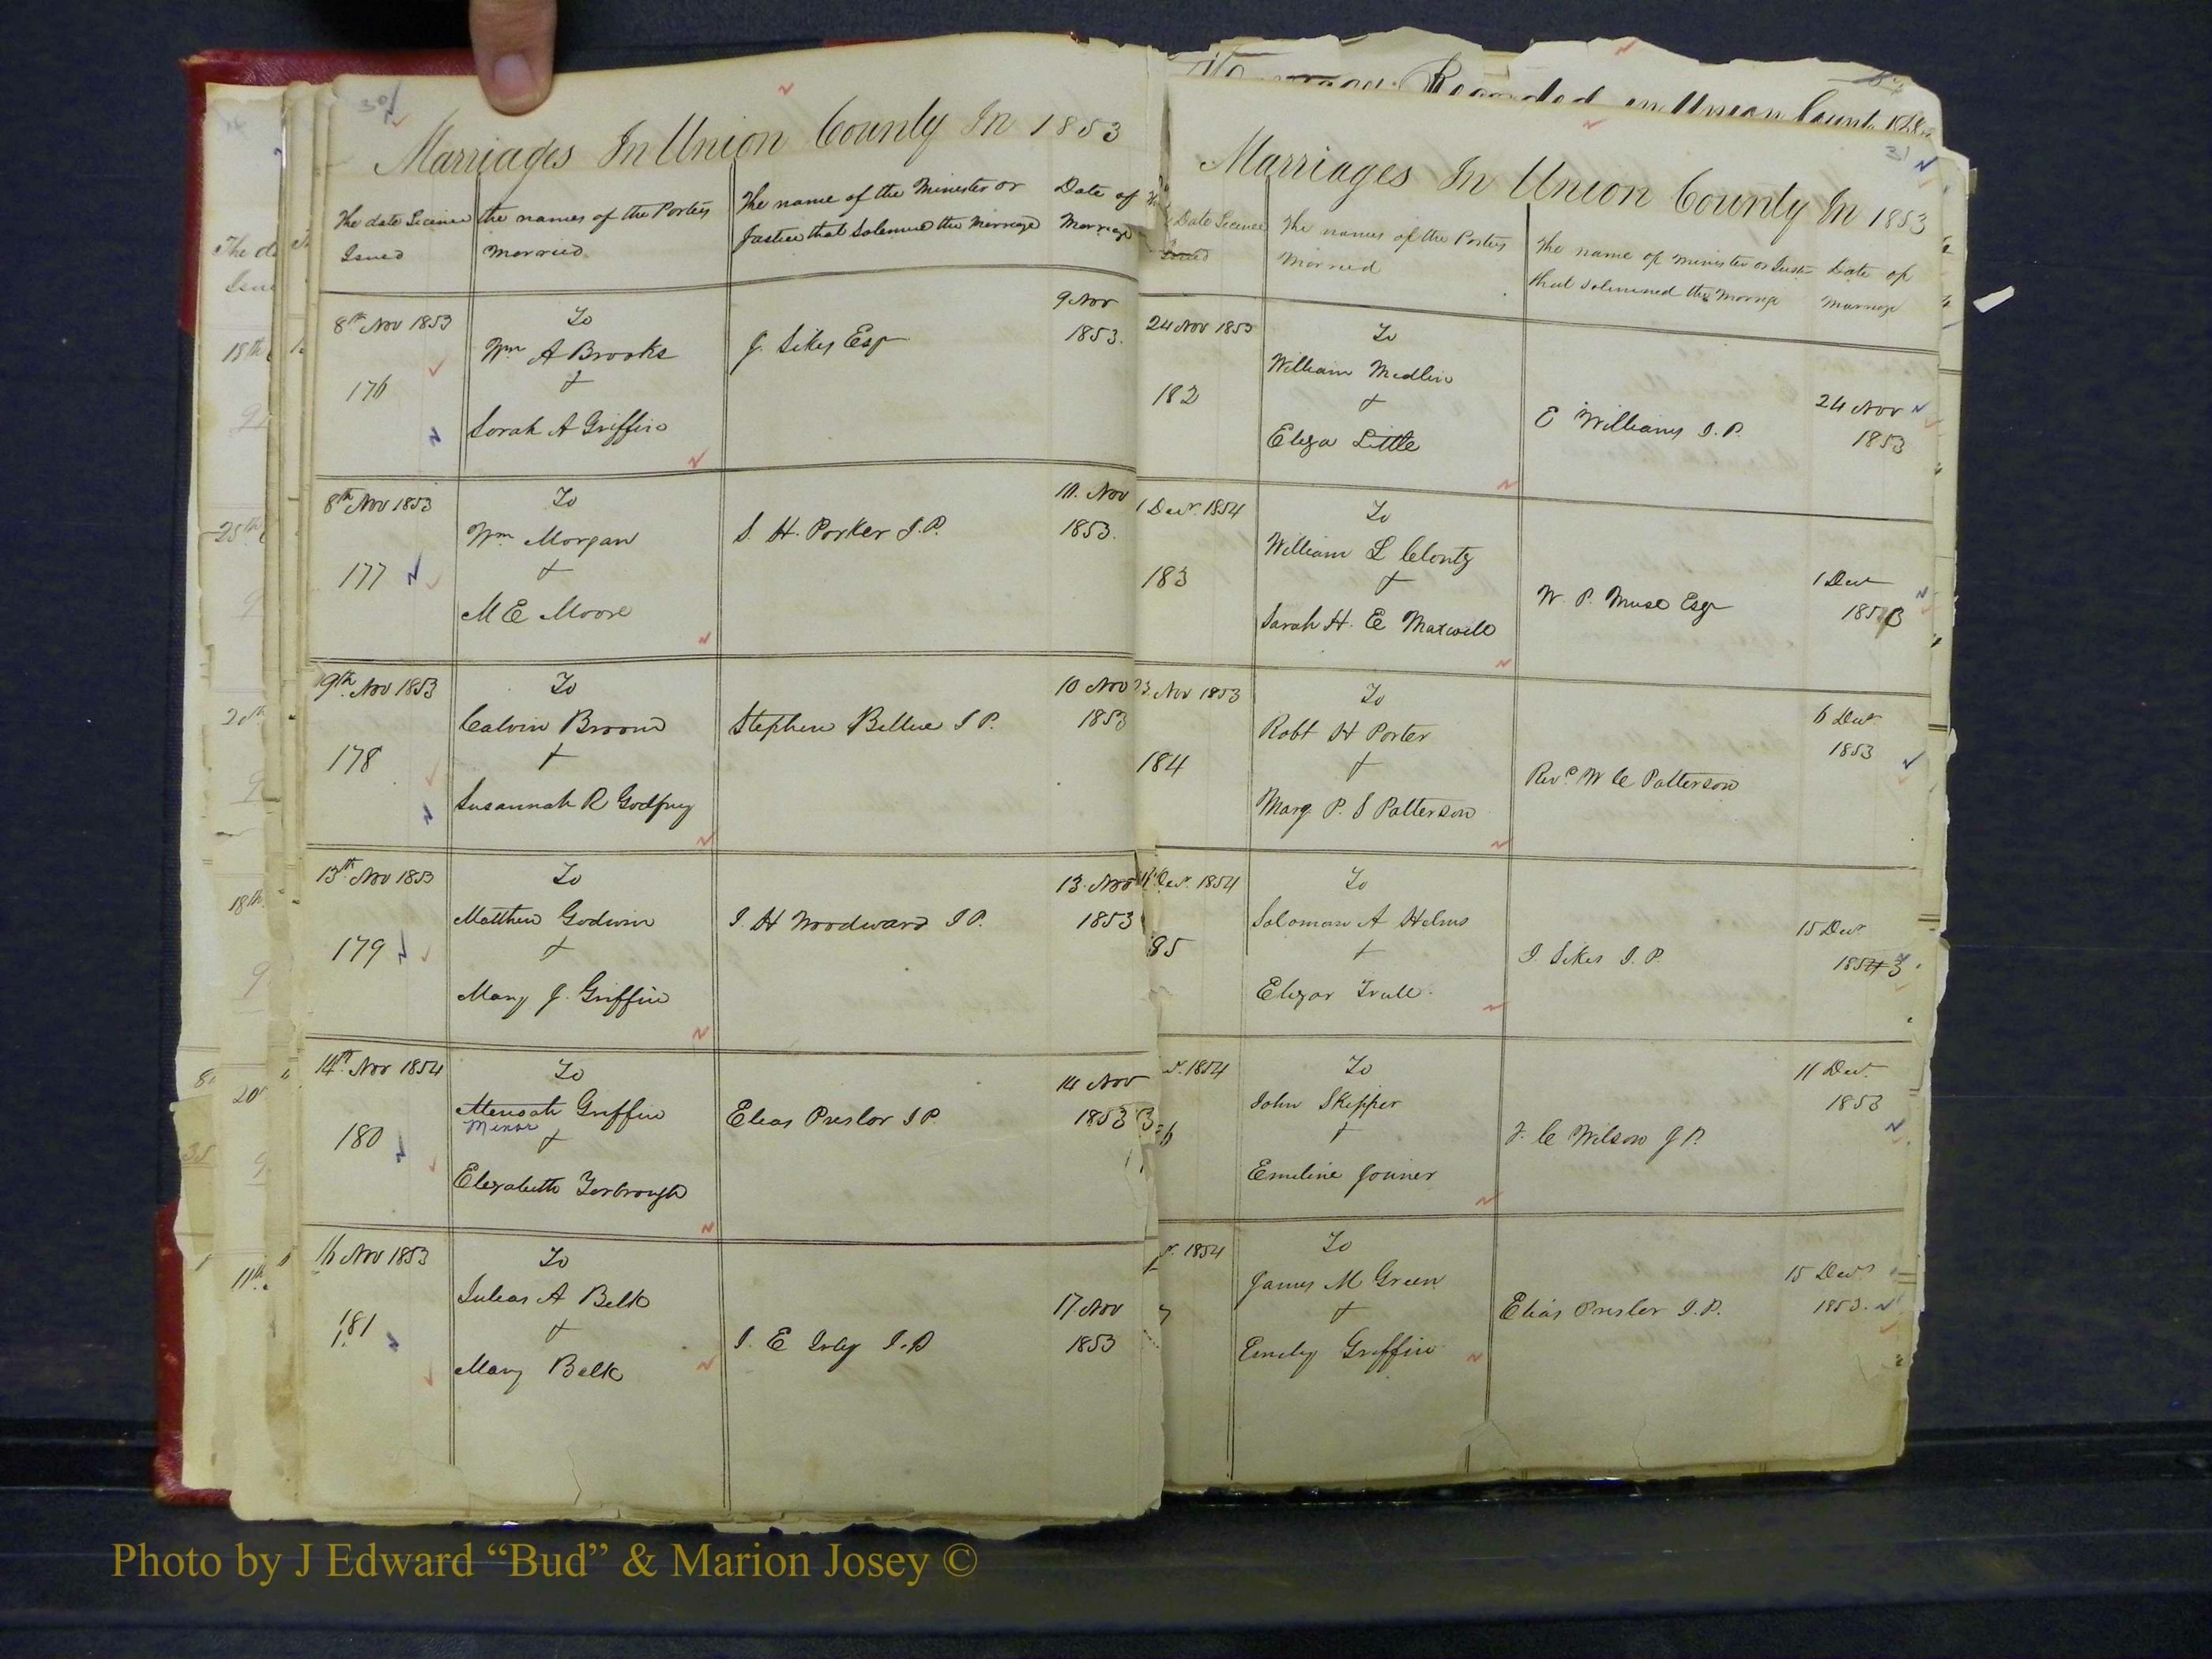 30
Marriages In Union County In 1853
The date Licence Issued
the names of the Parties Married
The name of the Minester or Justice that Solemned the Marriage
Date of Marriage
8th Nov 1853
To
9 Nov
Wm A Brooks
J. Sikes Esqr
1853.
176
&
Sarah A Griffin
8th Nov 1853
To
10. Nov
Wm Morgan
S. H. Porker J.P.
1853.
177
&
M E Moore
9th Nov 1853
To
10 Nov
Calvin Broom
Stephen Bellue J P.
1853
178
&
Susannah R Godfrey
13th Nov 1853
To
13. Nov
Matthew Godwin
J. H Woodward J P.
1853
179
&
Mary J. Griffin
14th Nov 1854
To
14 Nov
Griffin
Elias Preslar J P.
1853
Minor
180
&
Elizabeth Yorbrough
16 Nov 1853
To
Julias A Belk
17 Nov
181
&
J. E Irby J.P
1853
Mary Belk
Recorded in Union
31
Marriages In Union County In 1853
Date Licence Issued
The names of the Parties Married
The name of Minister or Justice that Solemned the Marriage
Date of Marriage
24 Nov 1853
To
William Medlin
182
&
24 Nov
E Williams J.P.
1853
Eliza Little
1 Decr. 1854
To
William L Clontz
183
&
1 Decr
W. P. Muse Esqr
1853
Sarah H. E Maxwell
23. Nov 1853
To
6 Decr
Robt H Porter
1853
184
&
Revd. W C Patterson
Marg. P. S Patterson
Decr. 1854
To
Soloman A Helms
15 Decr
85
&
J. Sikes J.P.
18543
Elizar Trull
r. 1854
To
11 Decr.
John Skipper
1853
6
&
F. C Wilson J P.
Emeline Joiner
r. 1854
To
James M Green
15 Decr
7
&
Elias Preslar J.P.
1853.
Emily Griffin
Photo by J Edward “Bud” & Marion Josey ©